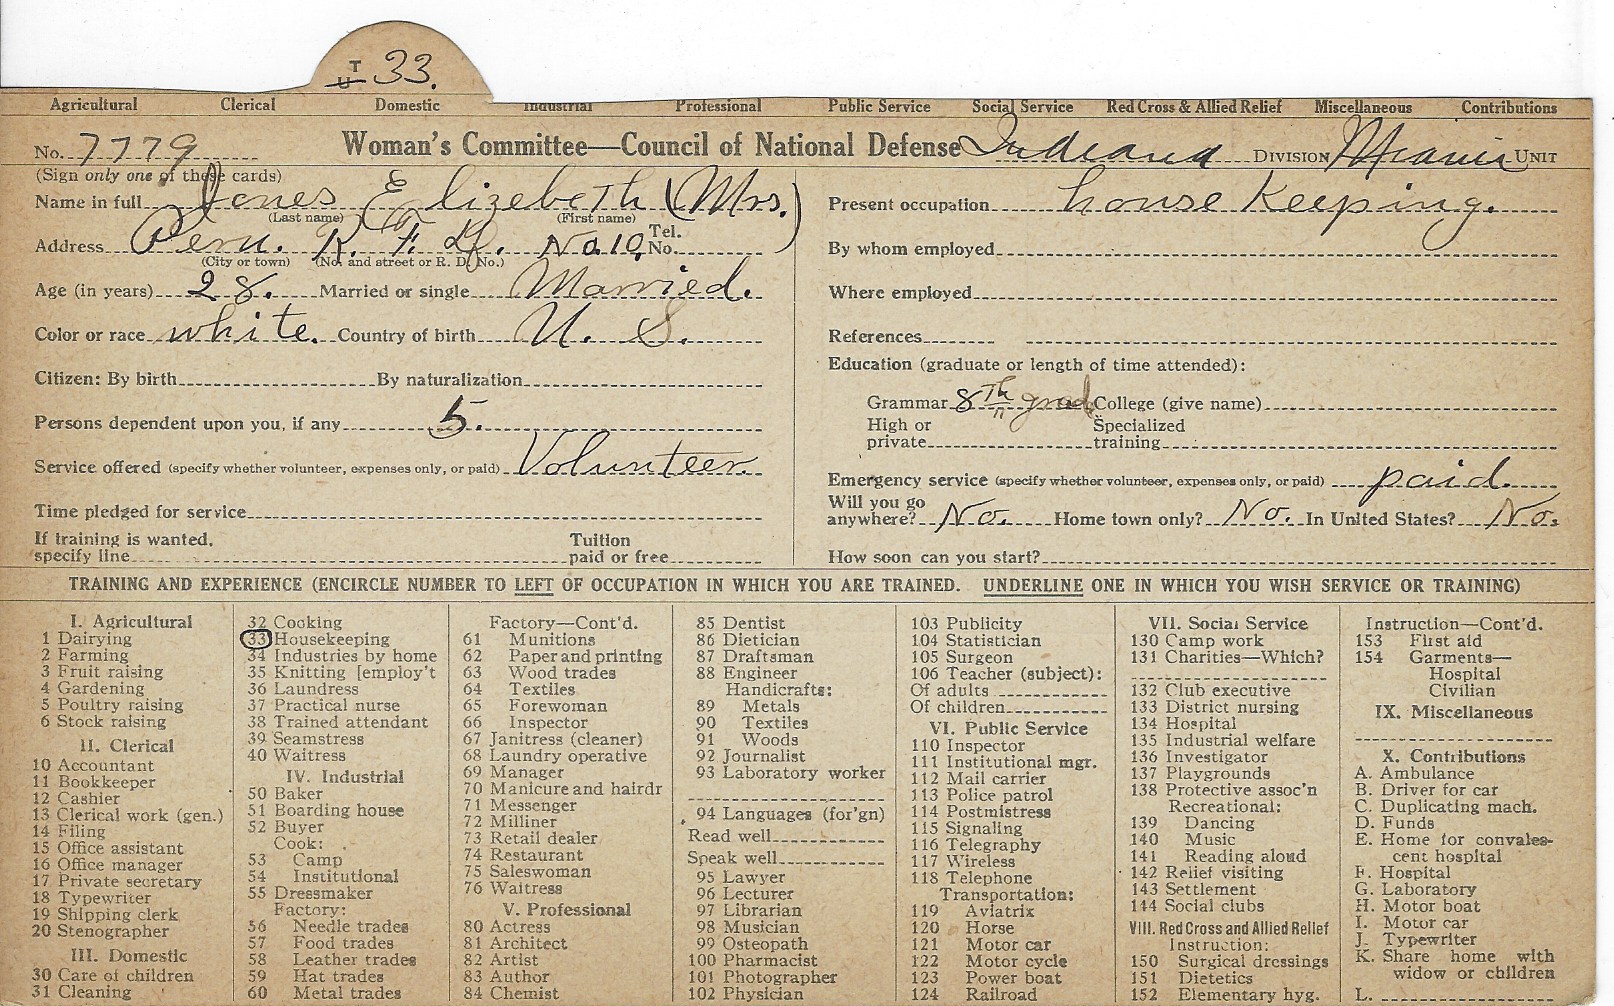 T
U 33.
Agricultural Clerical Domestic Industrial Professional Public Service Social Service Red Cross & Allied Relief Miscellaneous Contributions
No. 7779 Woman's Committee—Council of National Defense Indiana DIVISION Miami UNIT
(Sign only one of these cards)
Name in full Jones Elizebeth (Mrs.)
(Last name) (First name)
Address Peru. R. F. D. No. 10. Tel. No.
(City or town) (No. and street or R. D. No.)
Age (in years) 28. Married or single Married.
Color or race white. Country of birth U. S.
Citizen: By birth By naturalization
Persons dependent upon you, if any 5.
Service offered (specify whether volunteer, expenses only, or paid) Volunteer.
Time pledged for service
If training is wanted, specify line Tuition paid or free
Present occupation house Keeping.
By whom employed
Where employed
References
Education (graduate or length of time attended):
Grammar 8th grad College (give name)
High or private Specialized training
Emergency service (specify whether volunteer, expenses only, or paid) paid.
Will you go anywhere? No. Home town only? No. In United States? No.
How soon can you start?
TRAINING AND EXPERIENCE (ENCIRCLE NUMBER TO LEFT OF OCCUPATION IN WHICH YOU ARE TRAINED. UNDERLINE ONE IN WHICH YOU WISH SERVICE OR TRAINING)
I. Agricultural
1 Dairying
2 Farming
3 Fruit raising
4 Gardening
5 Poultry raising
6 Stock raising
II. Clerical
10 Accountant
11 Bookkeeper
12 Cashier
13 Clerical work (gen.)
14 Filing
15 Office assistant
16 Office manager
17 Private secretary
18 Typewriter
19 Shipping clerk
20 Stenographer
III. Domestic
30 Care of children
31 Cleaning
32 Cooking
33 Housekeeping
34 Industries by home
35 Knitting [employ't
36 Laundress
37 Practical nurse
38 Trained attendant
39 Seamstress
40 Waitress
IV. Industrial
50 Baker
51 Boarding house
52 Buyer
Cook:
53 Camp
54 Institutional
55 Dressmaker
Factory:
56 Needle trades
57 Food trades
58 Leather trades
59 Hat trades
60 Metal trades
Factory—Cont'd.
61 Munitions
62 Paper and printing
63 Wood trades
64 Textiles
65 Forewoman
66 Inspector
67 Janitress (cleaner)
68 Laundry operative
69 Manager
70 Manicure and hairdr
71 Messenger
72 Milliner
73 Retail dealer
74 Restaurant
75 Saleswoman
76 Waitress
V. Professional
80 Actress
81 Architect
82 Artist
83 Author
84 Chemist
85 Dentist
86 Dietician
87 Draftsman
88 Engineer
Handicrafts:
89 Metals
90 Textiles
91 Woods
92 Journalist
93 Laboratory worker
94 Languages (for'gn)
Read well
Speak well
95 Lawyer
96 Lecturer
97 Librarian
98 Musician
99 Osteopath
100 Pharmacist
101 Photographer
102 Physician
103 Publicity
104 Statistician
105 Surgeon
106 Teacher (subject):
Of adults
Of children
VI. Public Service
110 Inspector
111 Institutional mgr.
112 Mail carrier
113 Police patrol
114 Postmistress
115 Signaling
116 Telegraphy
117 Wireless
118 Telephone
Transportation:
119 Aviatrix
120 Horse
121 Motor car
122 Motor cycle
123 Power boat
124 Railroad
VII. Social Service
130 Camp work
131 Charities—Which?
132 Club executive
133 District nursing
134 Hospital
135 Industrial welfare
136 Investigator
137 Playgrounds
138 Protective assoc'n
Recreational:
139 Dancing
140 Music
141 Reading aloud
142 Relief visiting
143 Settlement
144 Social clubs
VIII. Red Cross and Allied Relief
Instruction:
150 Surgical dressings
151 Dietetics
152 Elementary hyg.
Instruction—Cont'd.
153 First aid
154 Garments—
Hospital
Civilian
IX. Miscellaneous
X. Contributions
A. Ambulance
B. Driver for car
C. Duplicating mach.
D. Funds
E. Home for convales-
cent hospital
F. Hospital
G. Laboratory
H. Motor boat
I. Motor car
J. Typewriter
K. Share home with
widow or children
L.